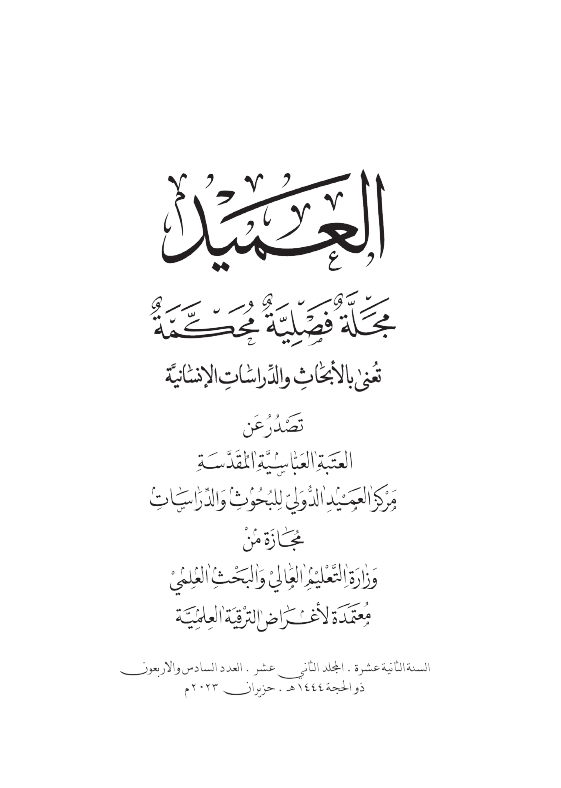 العميد
مَجَلَّةٌ فَصْلِيَّةٌ مُحَكَّمَةٌ
تُعنى بالأبحاثِ والدِّراساتِ الإنسانيَّة
تَصْدُرُ عَن
العتَبةِ العَبَّاسِيَّةِ المُقَدَّسَةِ
مَركزِ العَمِيْدِ الدُّوَلِيِّ لِلبُحُوْثِ وَالدِّرَاسَاتِ
مُجَازَة مِنْ
وَزارَةِ التَّعْلِيْمِ العَالِيْ وَالبَحْثِ العِلْمِيْ
مُعتَمَدَة لأغْرَاضِ التَرقِيَةِ العِلمِيَّة
السنة الثانية عشرة . المجلد الثاني عشر . العدد السادس والاربعون
ذو الحجة ١٤٤٤هـ . حزيران ٢٠٢٣م